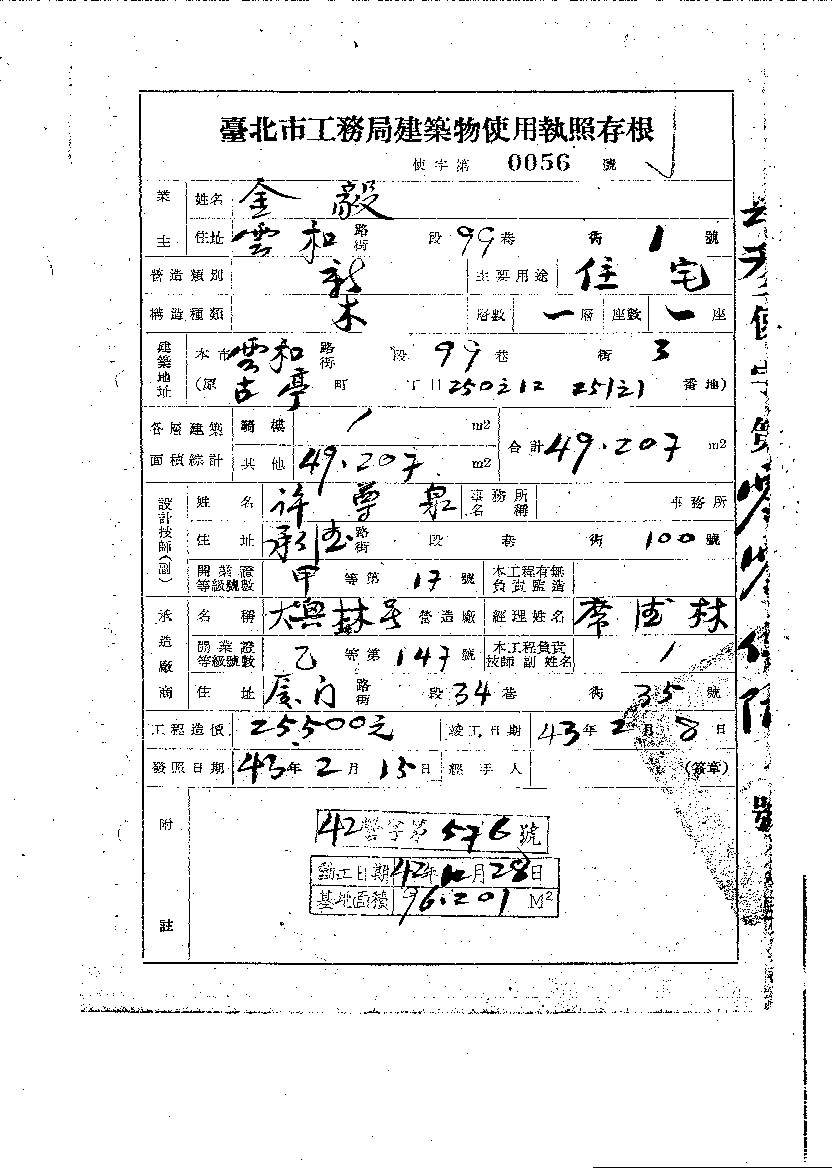 臺北市工務局建築物使用執照存根
使字第 0056 號
業主 姓名 金毅
住址 雲和 路街 段 99 巷 衖 1 號
營造類別 新 主要用途 住宅
構造種類 木 層數 一層 座數 一座
建築地址 本市 雲和 路街 段 99 巷 衖 3
(原 古亭 町 丁目 250之12 251之1 番地)
各層建築面積綜計 騎樓 / m2 合計 49.207 m2
其他 49.207 m2
設計技師(副) 姓名 許尊泉 事務所名稱 事務所
住址 承德 路街 段 巷 衖 100 號
開業證等級號數 甲 等第 17 號 本工程有無負責監造
承造廠商 名稱 營造廠 經理姓名 席德林
開業證等級號數 乙 等第 147 號 本工程負責技師副姓名 /
住址 厦门 路街 段 34 巷 衖 35 號
工程造價 25,500元 竣工日期 43年2月8日
發照日期 43年2月15日 經手人 (簽章)
附註
42營字第576號
動工日期 42年12月28日
基地面積 96.201 M2